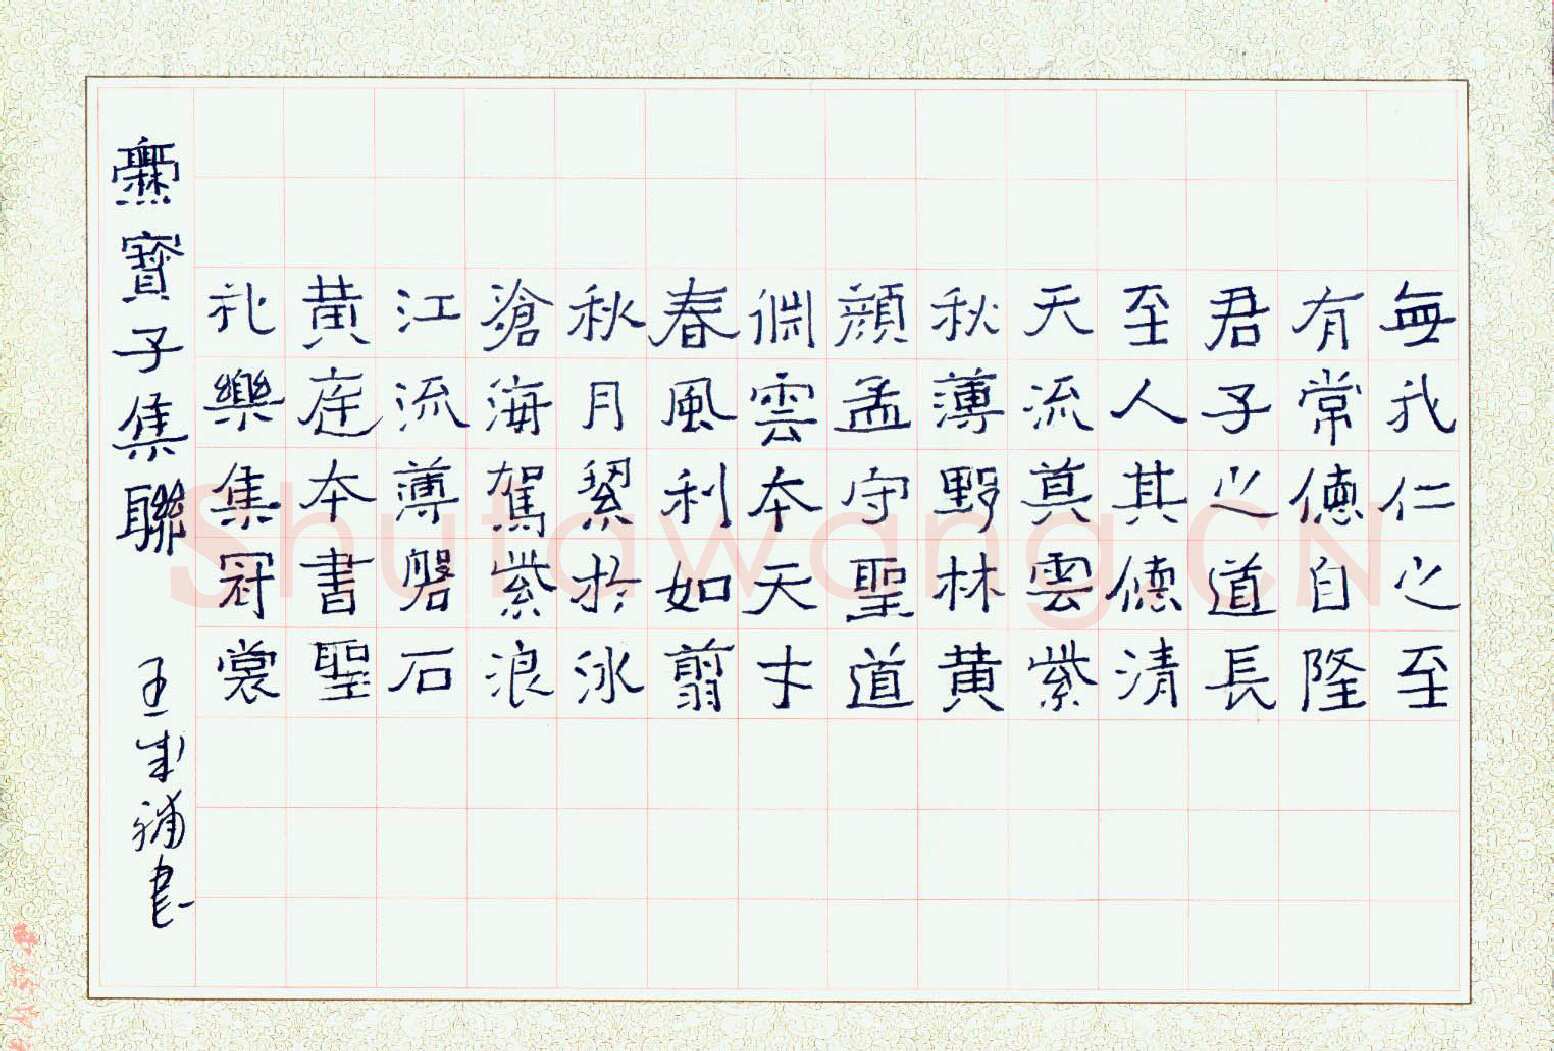 無我仁之至
有常德自隆
君子之道長
至人其德清
天流真雲紫
秋薄野林黄
顔孟守聖道
淵雲本天才
春風利如翦
秋月絜於冰
滄海駕紫浪
江流薄磐石
黄庭本書聖
礼樂集冠裳
爨寶子集聯
王成補書
Shufawang.CN